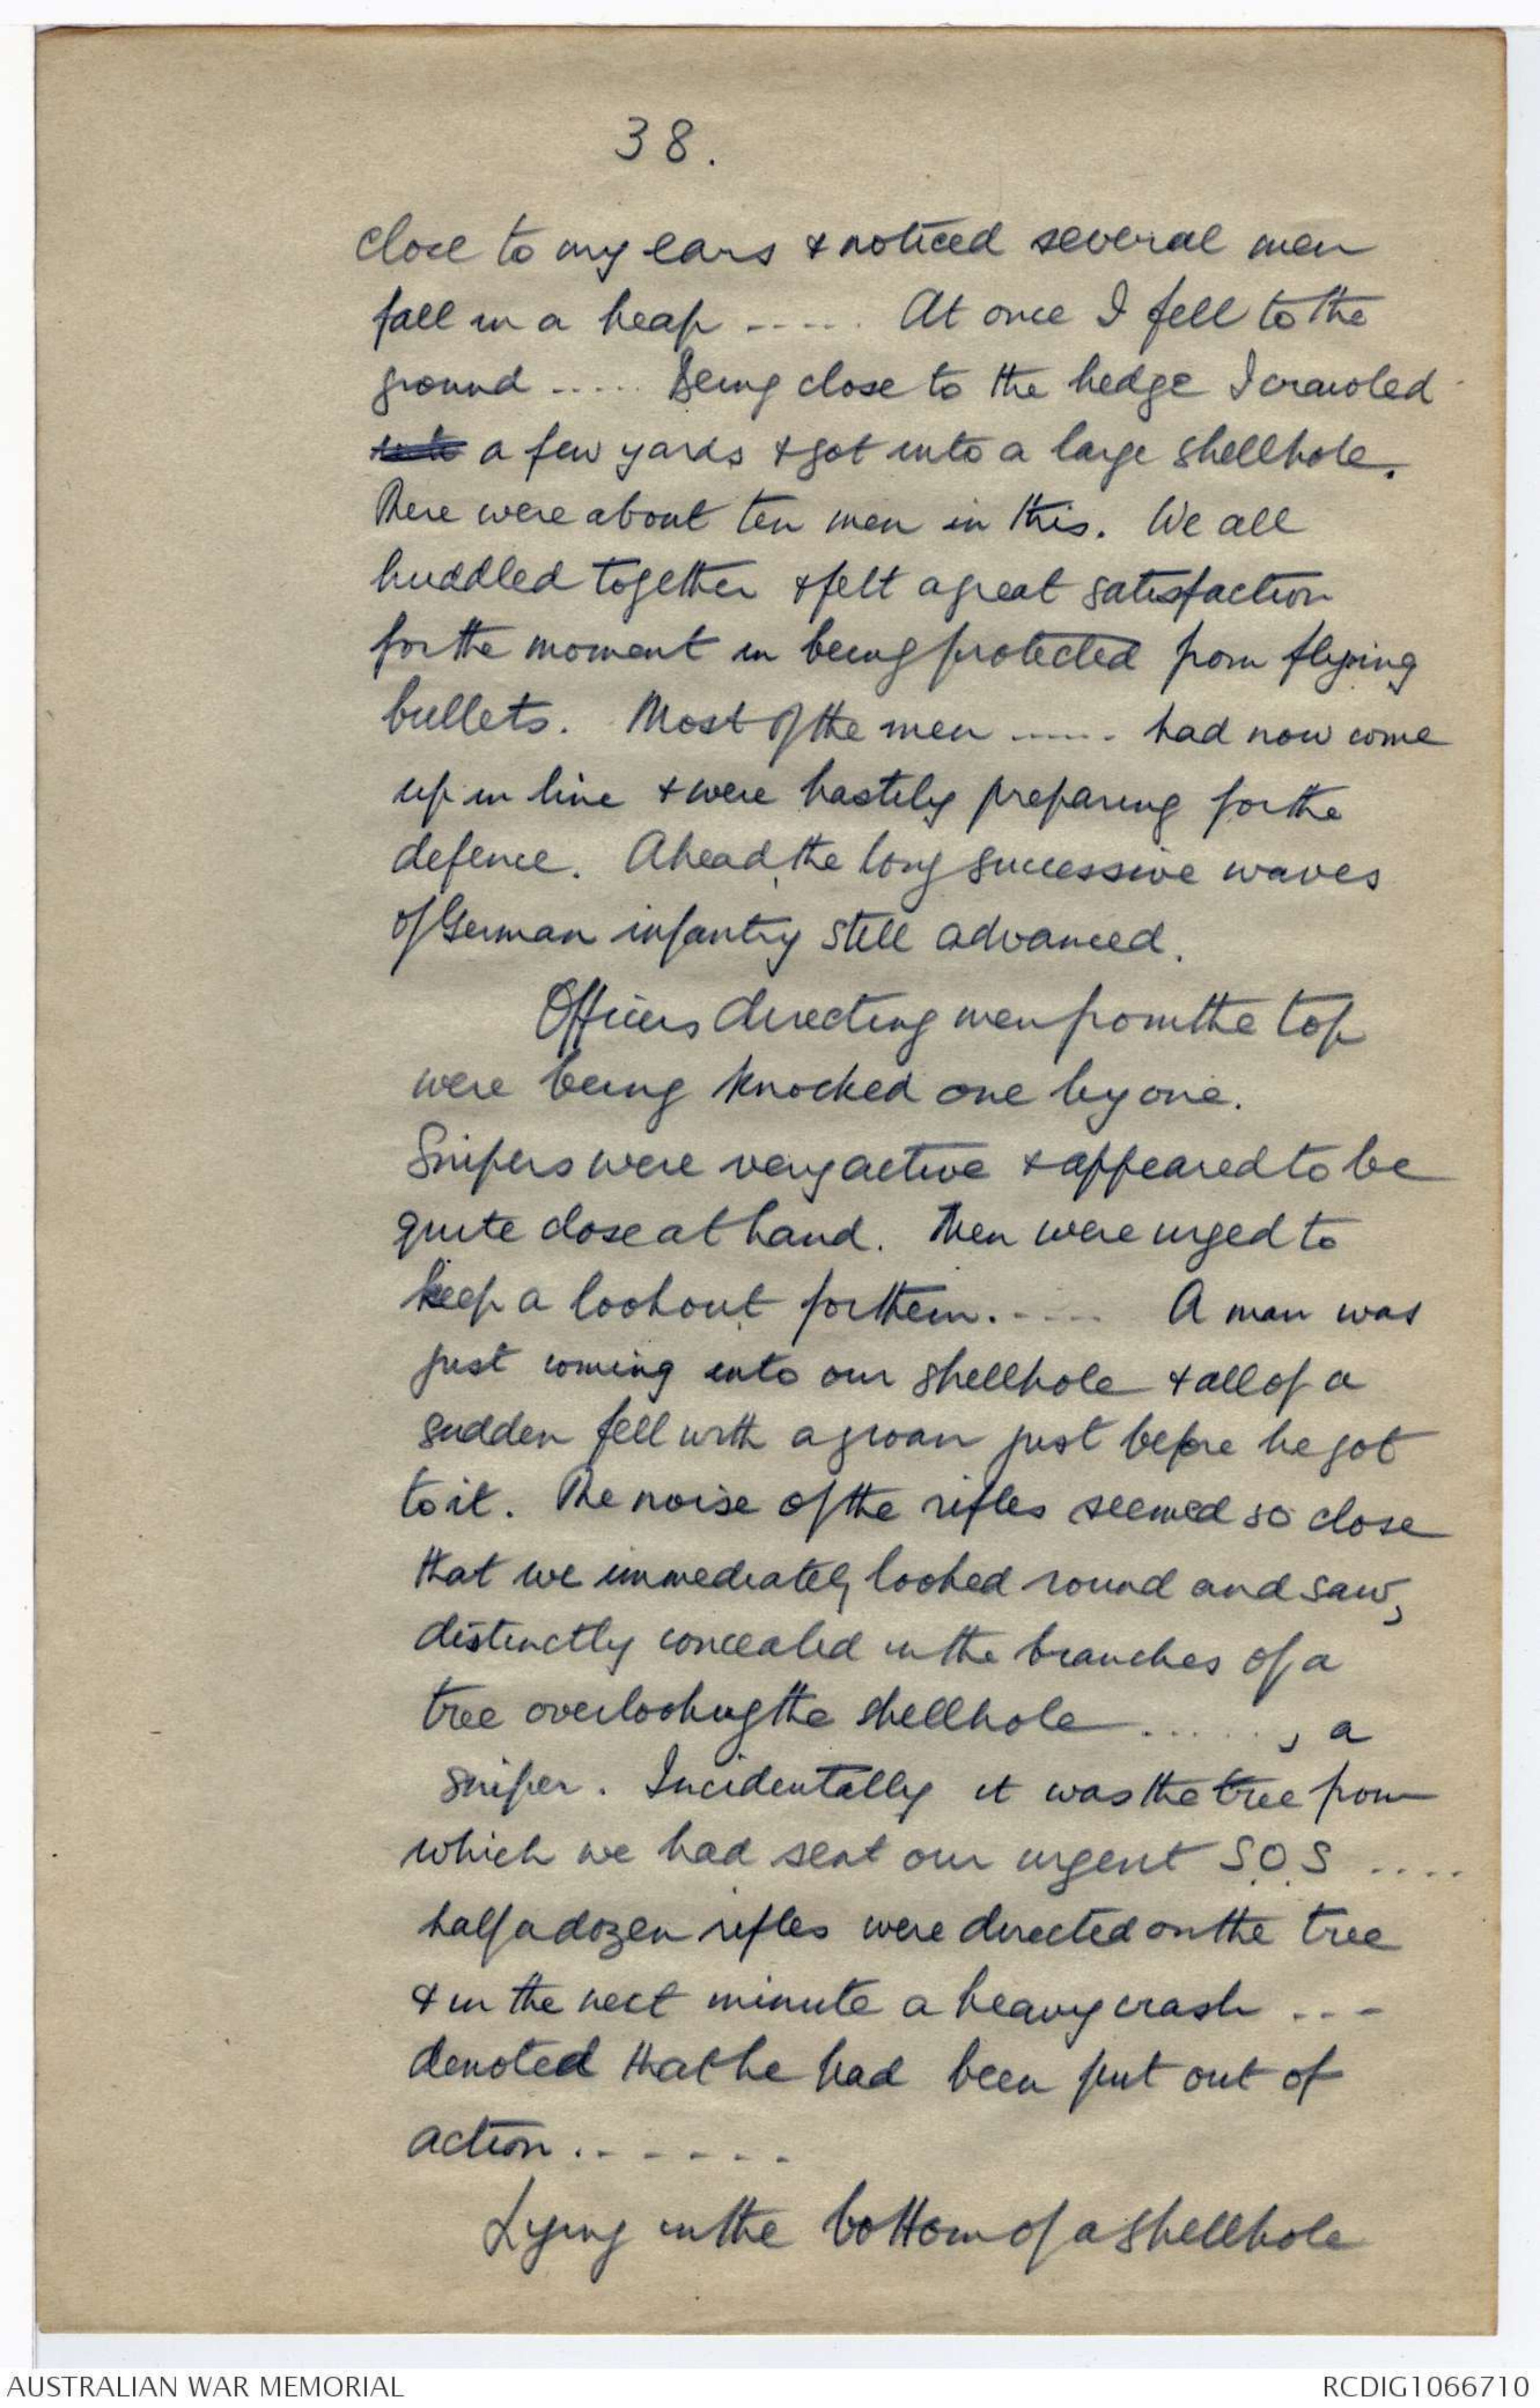 38.
close to my ears & noticed several men
fall in a heap ..... At once I fell to the
ground ..... Being close to the hedge I crawled
a few yards & got into a large shellhole.
There were about ten men in this. We all
huddled together & felt a great satisfaction
for the moment in being protected from flying
bullets. Most of the men ..... had now come
up in line & were hastily preparing for the
defence. Ahead, the long successive waves
of German infantry still advanced.
Officers directing men from the top
were being knocked one by one.
Snipers were very active & appeared to be
quite close at hand. Men were urged to
keep a lookout for them. .... A man was
just coming into our shellhole & all of a
sudden fell with a groan just before he got
to it. The noise of the rifles seemed so close
that we immediately looked round and saw,
distinctly concealed in the branches of a
tree overlooking the shellhole ....., a
sniper. Incidentally it was the tree from
which we had sent our urgent S.O.S ....
half a dozen rifles were directed on the tree
& in the next minute a heavy crash ...
denoted that he had been put out of
action.......
Lying in the bottom of a shellhole
AUSTRALIAN WAR MEMORIAL
RCDIG1066710